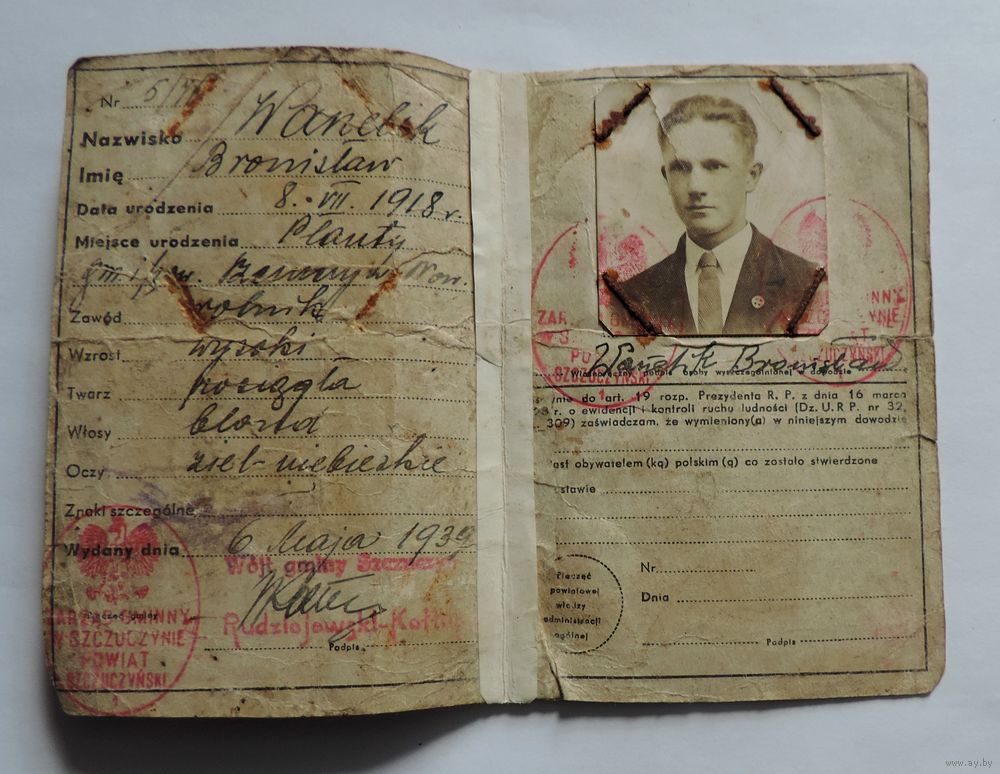 Nr
Nazwisko Wanelik
Imię Bronisław
Data urodzenia 8. VII. 1918 r.
Miejsce urodzenia Planty
Zawód rolnik
Wzrost wysoki
Twarz pociągła
Włosy blond
Oczy ziel-niebieskie
Znaki szczególne
Wydany dnia 6 Maja 1939
Wójt gminy
Rudziejewski-
Podpis
ZARZĄD GMINNY
W SZCZUCZYNIE
POWIAT
SZCZUCZYŃSKI
Bronisław
Własnoręczny podpis osoby wyszczególnionej w dowodzie
do art. 19 rozp. Prezydenta R. P. z dnia 16 marca
r. o ewidencji i kontroli ruchu ludności (Dz. U. R. P. nr 32,
309) zaświadczam, że wymieniony(a) w niniejszym dowodzie
jest obywatelem (ką) polskim (ą) co zostało stwierdzone
stawie
Nr
Dnia
Pieczęć
powiatowej
władzy
administracji
ogólnej
Podpis
www.ay.by